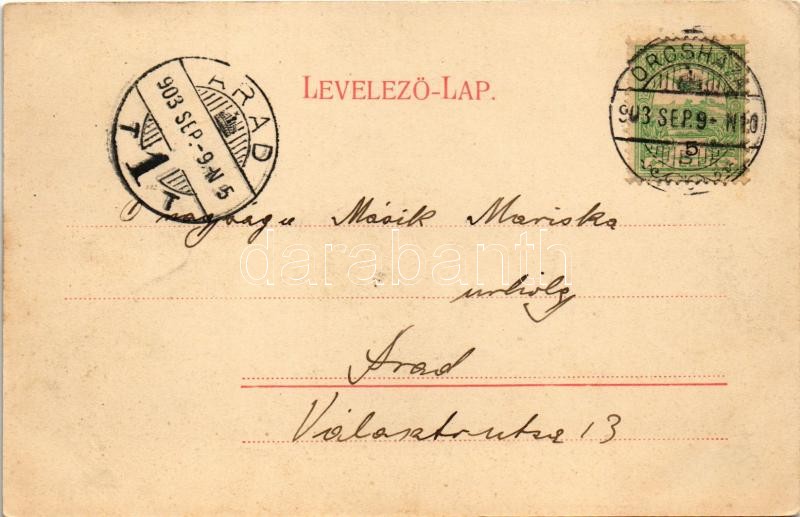 LEVELEZÖ-LAP.
ARAD
903 SEP.-9-N5
T 1 T
OROSHÁZA
903 SEP. 9- N10
5
Ő nagysága Másik Mariska
urhölgy
Arad
Választóutca 13
darabanth